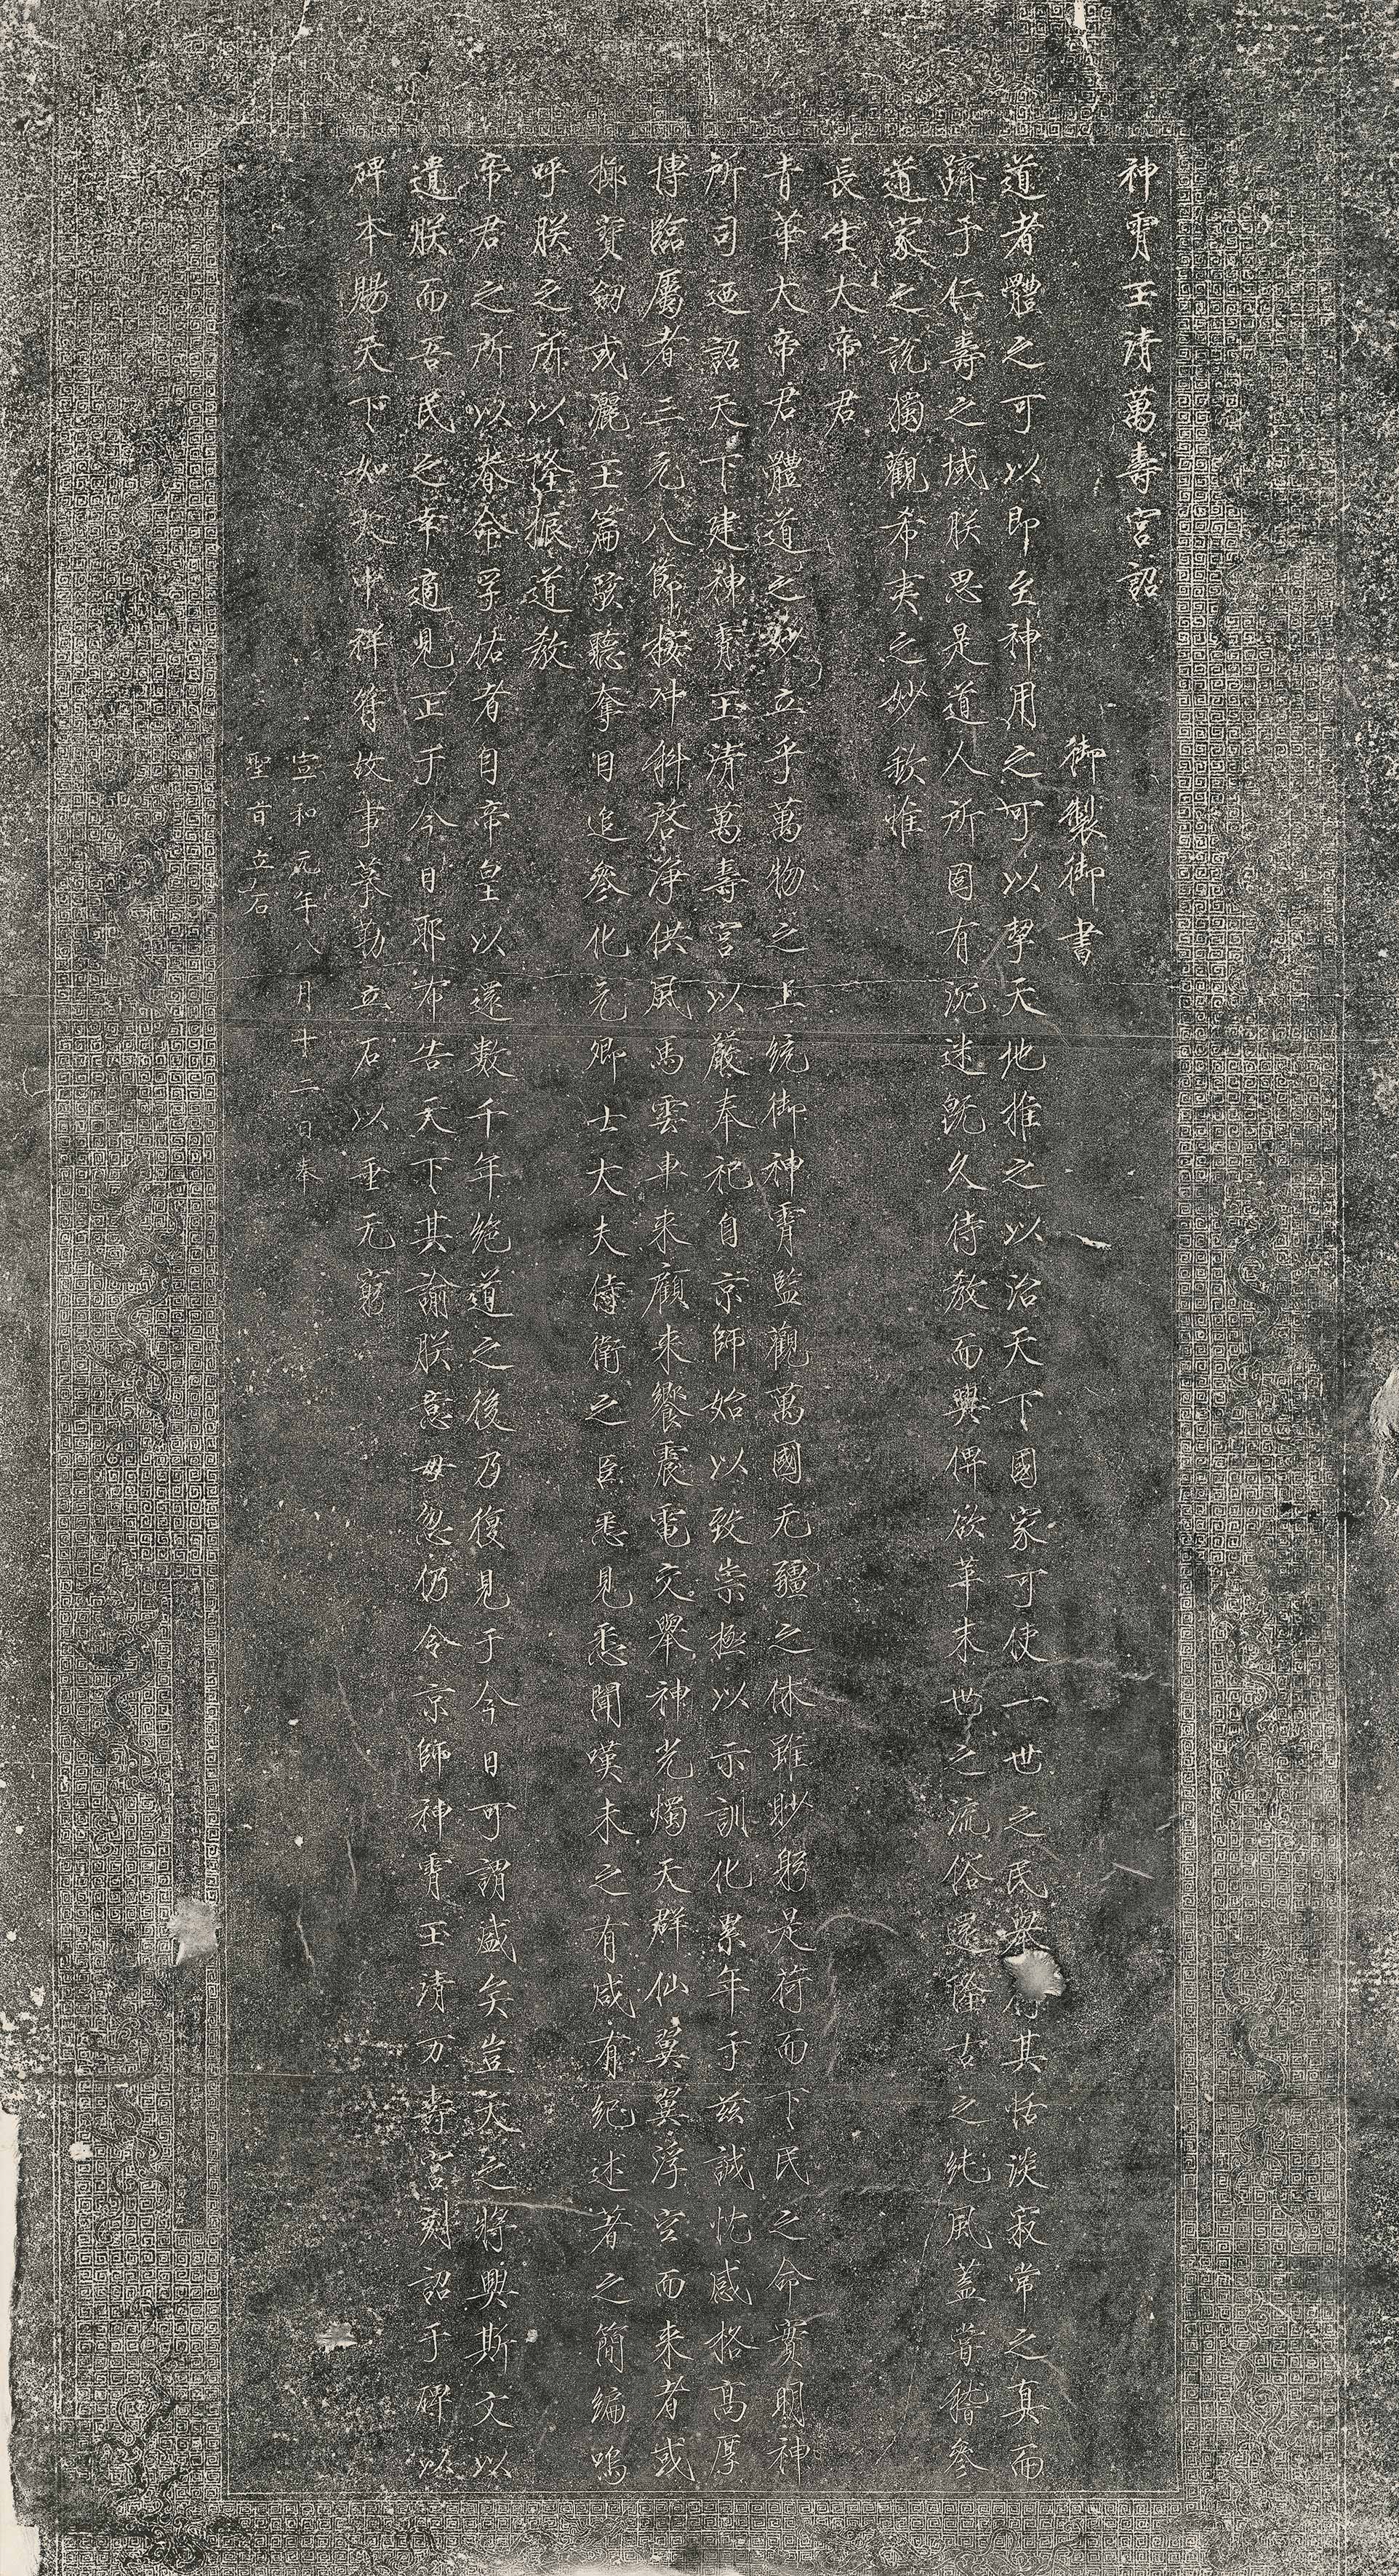 神霄玉清萬壽宮詔
御製御書
道者體之可以即至神用之可以挈天地推之以治天下國家可使一世之民舉得其恬淡寂常之真而
躋于仁壽之域朕思是道人所固有沉迷既久待教而興俾欲革末世之流俗還隆古之純風蓋嘗稽參
道家之說獨觀希夷之妙欽惟
長生大帝君
青華大帝君體道之妙立乎萬物之上統御神霄監觀萬國无疆之休雖眇躬是荷而下民之命實明神
所司迺詔天下建神霄玉清萬壽宮以嚴奉祀自京師始以致崇極以示訓化累年于茲誠忱感格高厚
博臨屬者三元八節按沖科啓淨供風馬雲車來顧來饗震電交舉神光燭天群仙翼翼浮空而來者或
擲寶劒或灑玉篇駭聽奪目追參化元卿士大夫侍衛之臣悉見悉聞嘆未之有咸有紀述著之簡編嗚
呼朕之所以隆振道教
帝君之所以眷命孚佑者自帝皇以還數千年絶道之後乃復見于今日可謂盛矣豈天之將興斯文以
遺朕而吾民之幸適見正于今日耶布告天下其諭朕意毋忽仍令京師神霄玉清万壽宮刻詔于碑以
碑本賜天下如大中祥符故事摹勒立石以垂无窮
宣和元年八月十二日奉
聖旨立石